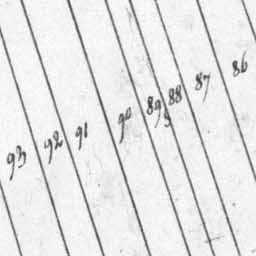 93 92 91 90 89 88 87 86